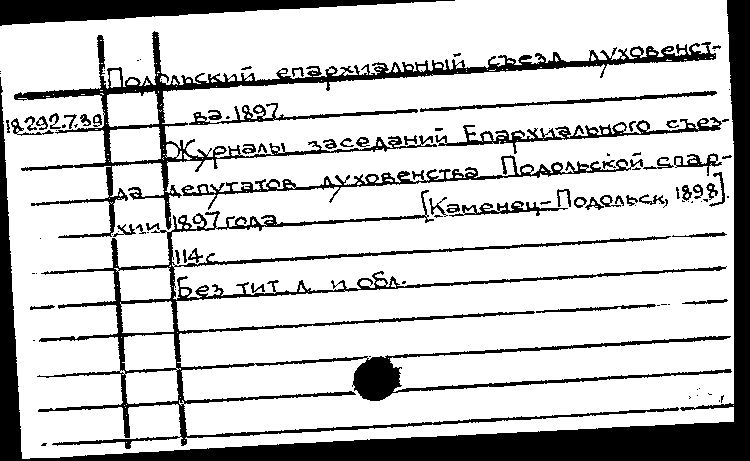 Подольский епархиальный съезд духовенст-
18.292.7.39 ва. 1897.
Журналы заседаний Епархиального съез-
да депутатов духовенства Подольской епар-
хии 1897 года. [Каменец-Подольск, 1898].
114 с.
Без тит. л. и обл.